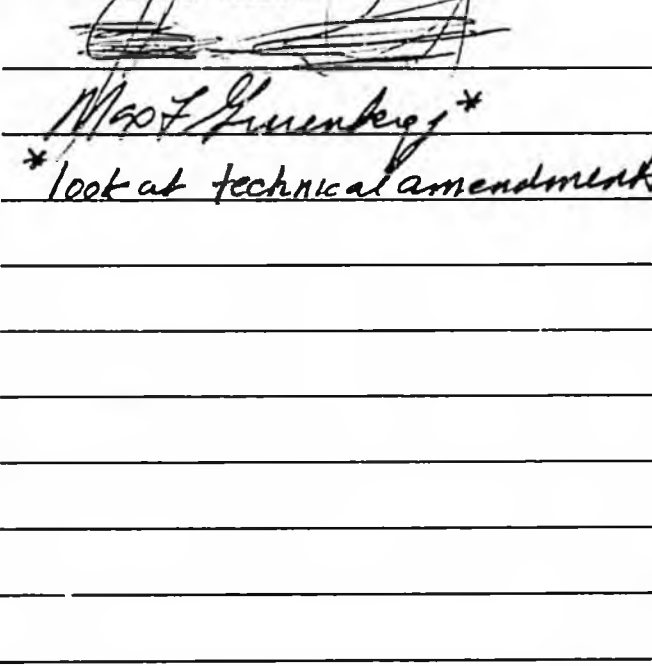 Max F Gruenberg *
* look at technical amendments